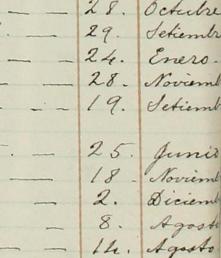 28. Octubre
29. Setiembr
24. Enero.
28. Noviemb
19. Setiemb
25. Junio
18. Noviemb
2. Diciemb
8. Agosto
14. Agosto